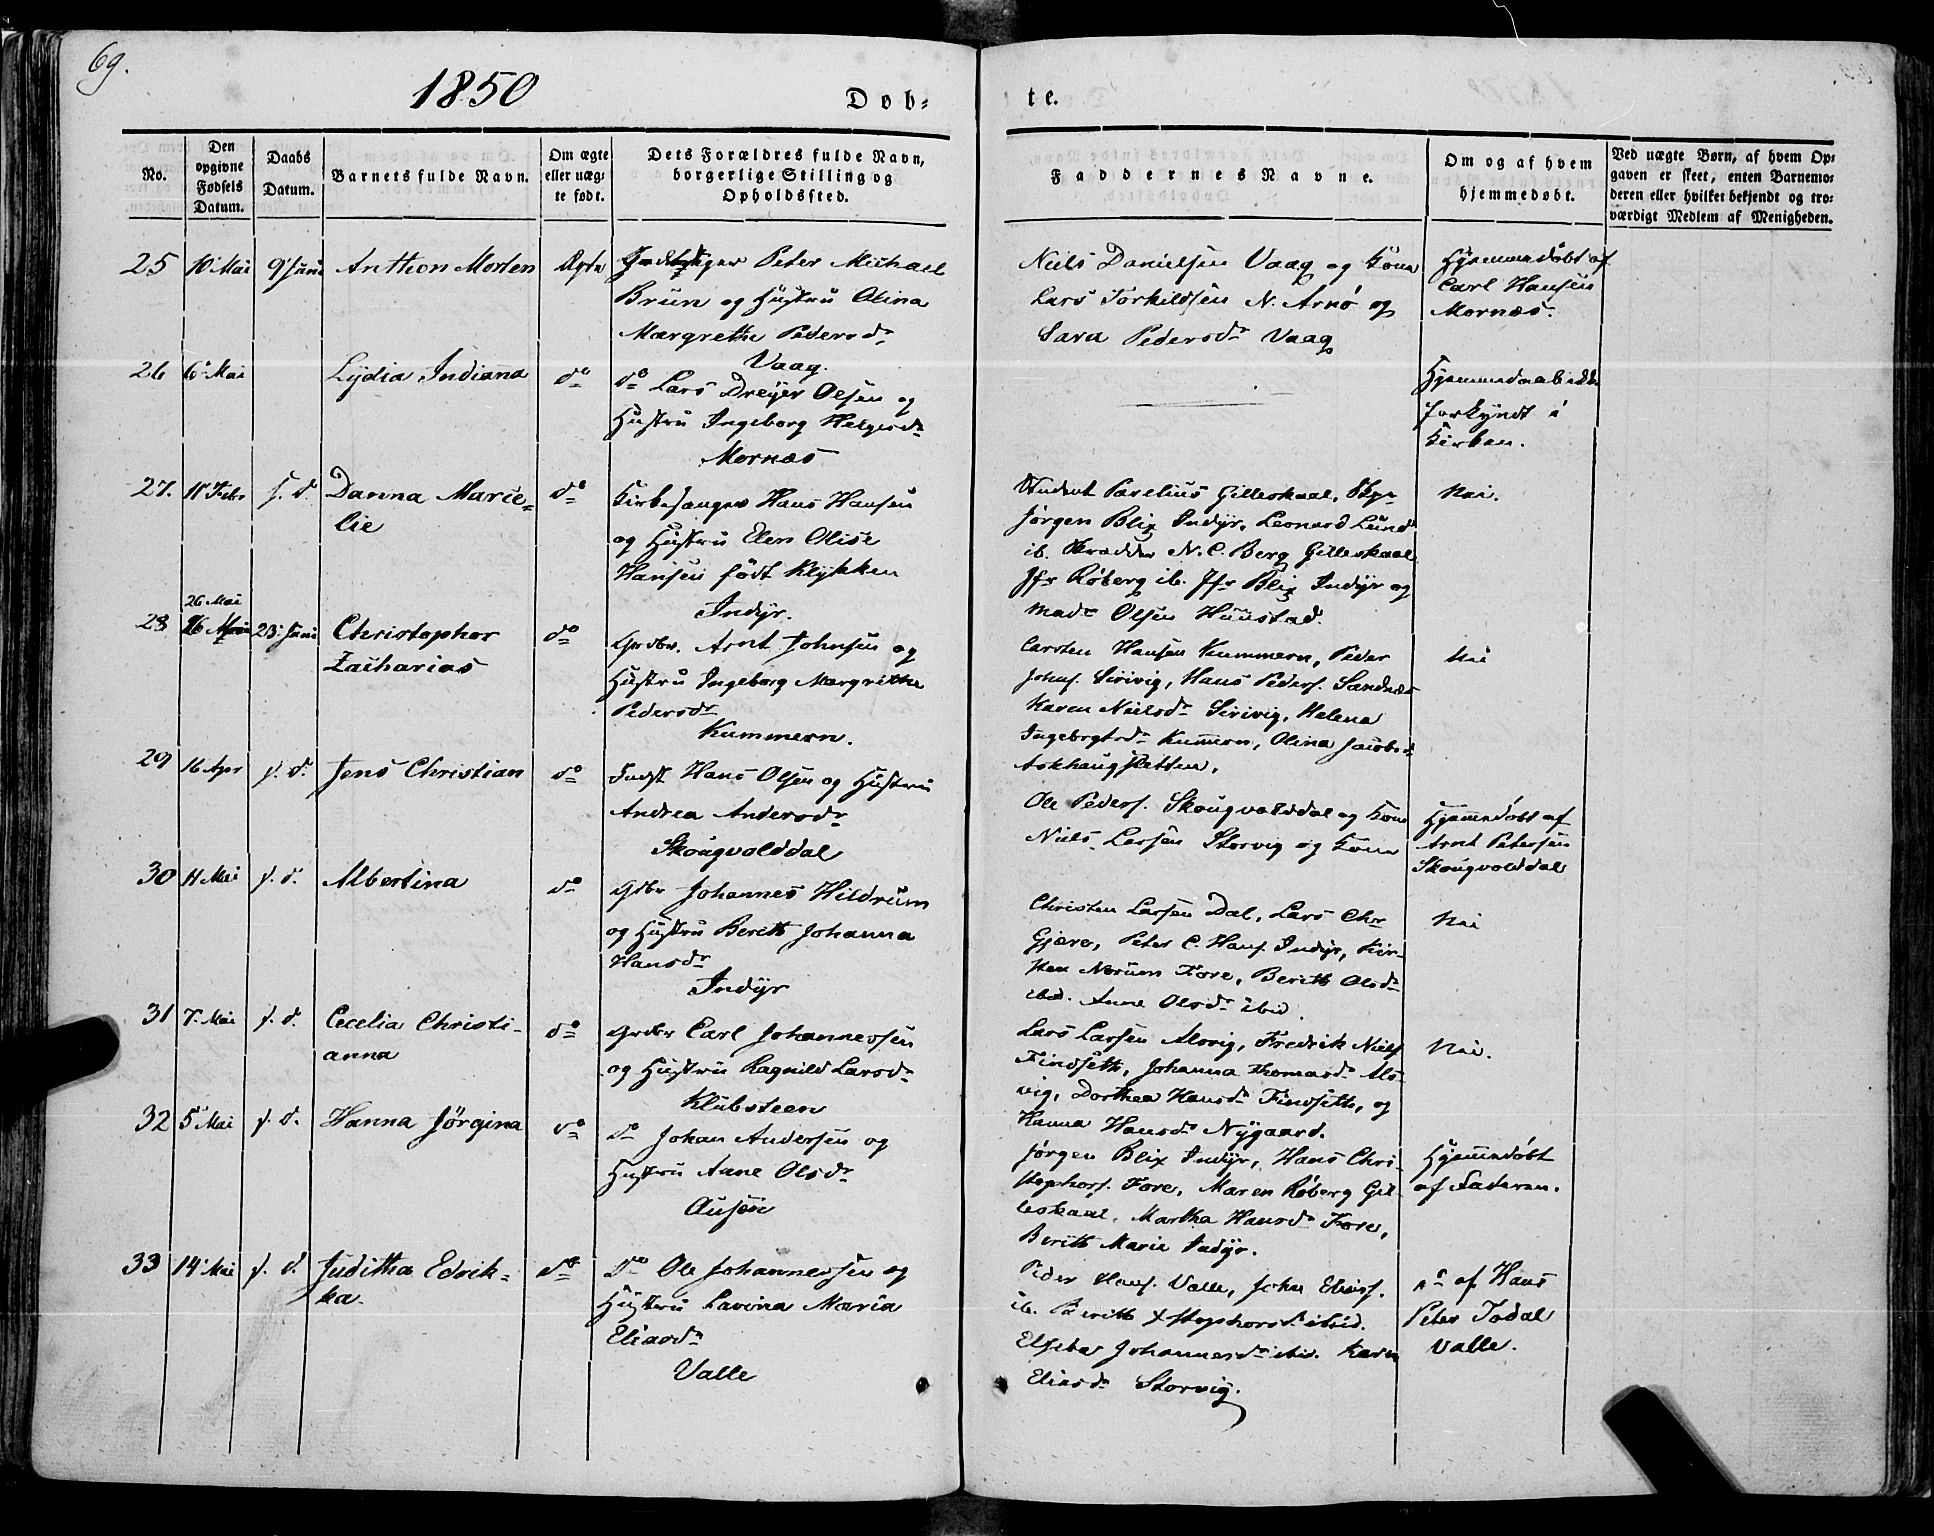 69.
1850
Døb-
te.
No.
Den opgivne Fødsels Datum.
Daabs Datum.
Barnets fulde Navn.
Om ægte eller uægte født.
Dets Forældres fulde Navn, borgerlige Stilling og Opholdssted.
Faddernes Navne.
Om og af hvem hjemmedøbt.
Ved uægte Børn, af hvem Opgaven er skeet, enten Barnemoderen eller hvilket bekjendt og troværdigt Medlem af Menigheden.
25 10 Mai 9 Juni Anthon Morten Ægte
Peter Michael
Brun og Hustru Olina
Margrethe Pedersdr
Vaag.
Niels Danielsen Vaag og Kone
Lars Torkildsen N. Arnø og
Sara Pedersdr Vaag
Hjemmedøbt af
Carl Hansen
Mornæs.
26 6 Mai Lydia Indiana do
do Lars Dreyer Olsen og
Hustru Ingeborg Helgesdr
Mornæs
Hjemmedaab ikke
forkyndt i
Kirken.
27. 11 Febr s. d. Danna Marie-
lie
do
Kirkesanger Hans Hansen
og Hustru Elen Olise
Hansen født Klykken
Indyr.
Student Parelius Gilleskaal,
Jørgen Blix Indyr, Leonard Lund
ib. Skrædder N. C. Berg Gilleskaal
Jfr Røberg ib. Jfr Blix Indyr og
Mad Olsen Hunstad.
Nei.
26 Mai
28 23 Juni Christopher
Zacharias
do
Grdbr. Arnt Johnsen og
Hustru Ingeborg Margrethe
Pedersdr
Kummern.
Carsten Hansen Kummern, Peder
Johns. Sirivig, Hans Peders. Sandnæs
Karen Nielsdr Sirivig, Helena
Ingebrgtsdr Kummern, Olina Jacobsd
Askhaugsletten.
Nei
29 16 Apr s. d. Jens Christian do
Indst Hans Olsen og Hustru
Andrea Andersdr
Skougvolddal
Ole Peders. Skougvolddal og Kone
Niels Larsen Storvig og Kone
Hjemmedøbt af
Arnt Petersen
Skougvolddal
30 11 Mai s. d. Albertina do
Grdbr Johannes Hildrum
og Hustru Berith Johanna
Hansdr
Indyr
Christen Larsen Dal, Lars Chr
Gjære, Peter C. Hans. Indyr, Kir-
sten Norum Fore, Berith Olsdr
ibid. Anne Olsdr ibid.
Nei
31 7. Mai s. d. Cecelia Christi-
anna
do
Grdbr Carl Johannessen
og Hustru Ragnild Larsdr
Klubsteen
Lars Larsen Alsvig, Fredrik Niels
Findseth, Johanna Thomasdr Als-
vig, Dorthea Hansdr Findseth, og
Hanna Hansdr Nygaard.
Nei.
32 5 Mai s. d. Hanna Jørgina do
do Johan Andersen og
Hustru Anne Olsdr
Ausen
Jørgen Blix Indyr, Hans Chri-
stophers. Fore, Maren Røberg Gil-
leskaal, Martha Hansdr Fore,
Berith Marie Indyr.
Hjemmedøbt
af Faderen.
33 14 Mai s. d. Juditha Edrik-
ka.
do
do Ole Johannessen og
Hustru Lavina Maria
Eliasdr
Valle
Peder Hans. Valle, John Elias.
ib. Berith Xstophersd ibid.
Elsebe Johannesdr ibid. Karen
Eliasdr Storvig.
do af Hans
Peter Todal
Valle.